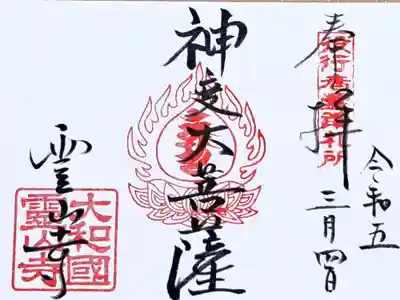 役行者霊蹟札所
奉拝
令和五
三月四日
神変大菩薩
霊山寺
大和國
靈山寺